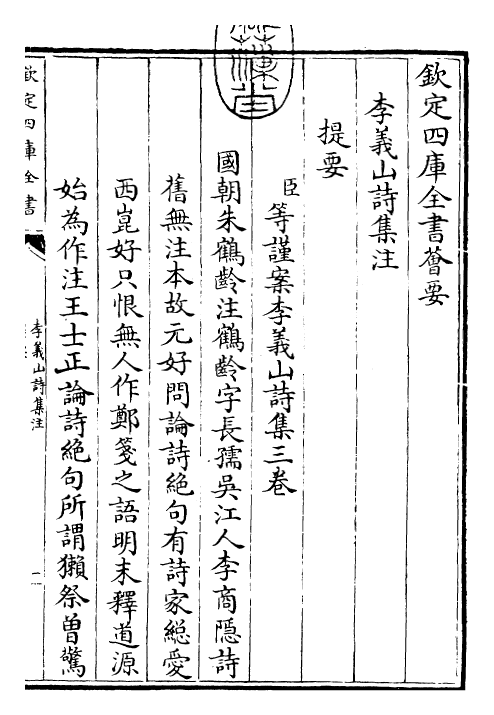 欽定四庫全書薈要
李義山詩集注
提要
臣等謹案李義山詩集三卷
國朝朱鶴齡注鶴齡字長孺吳江人李商隱詩
舊無注本故元好問論詩絶句有詩家縂愛
西崑好只恨無人作鄭箋之語明末釋道源
始為作注王士正論詩絶句所謂獺祭曾驚
欽定四庫全書
李義山詩集注